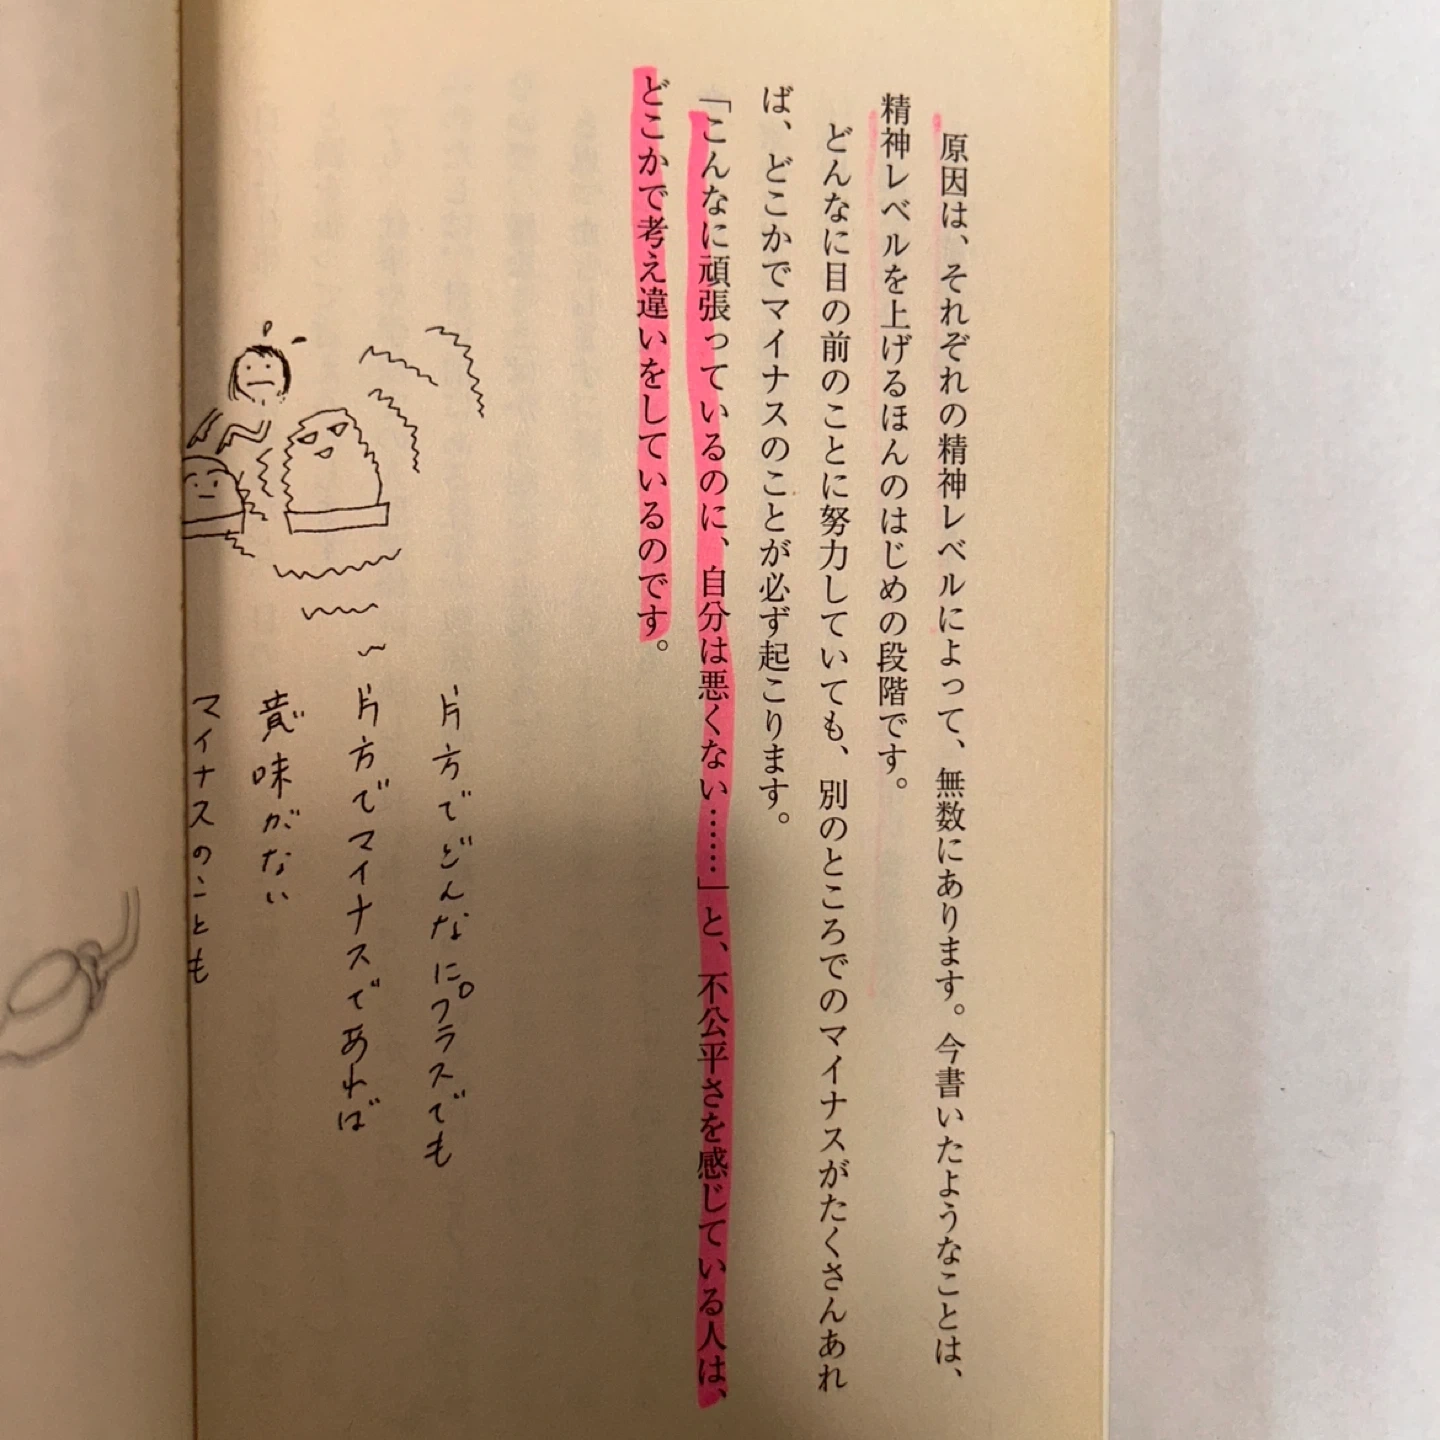 原因は、それぞれの精神レベルによって、無数にあります。今書いたようなことは、
精神レベルを上げるほんのはじめの段階です。
どんなに目の前のことに努力していても、別のところでのマイナスがたくさんあれ
ば、どこかでマイナスのことが必ず起こります。
「こんなに頑張っているのに、自分は悪くない……」と、不公平さを感じている人は、
どこかで考え違いをしているのです。
片方でどんなにプラスでも
片方でマイナスであれば
意味がない
マイナスのことも